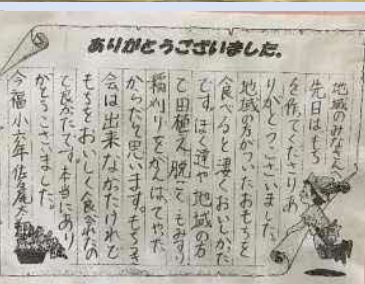 ありがとうございました。
地域のみなさんへ
先日はもち
を作ってくださりあ
りがとうございました。
地域の方がついたおもちを
食べると凄くおいしかった
です。ぼく達や地域の方
で田植え、脱こく、もみすり、
稲刈りをがんばってやった
からだと思います。もちつき
会は出来なかったけれど
もちをおいしく食べれたの
で良かったです。本当にあり
がとうございました。
今福小六年